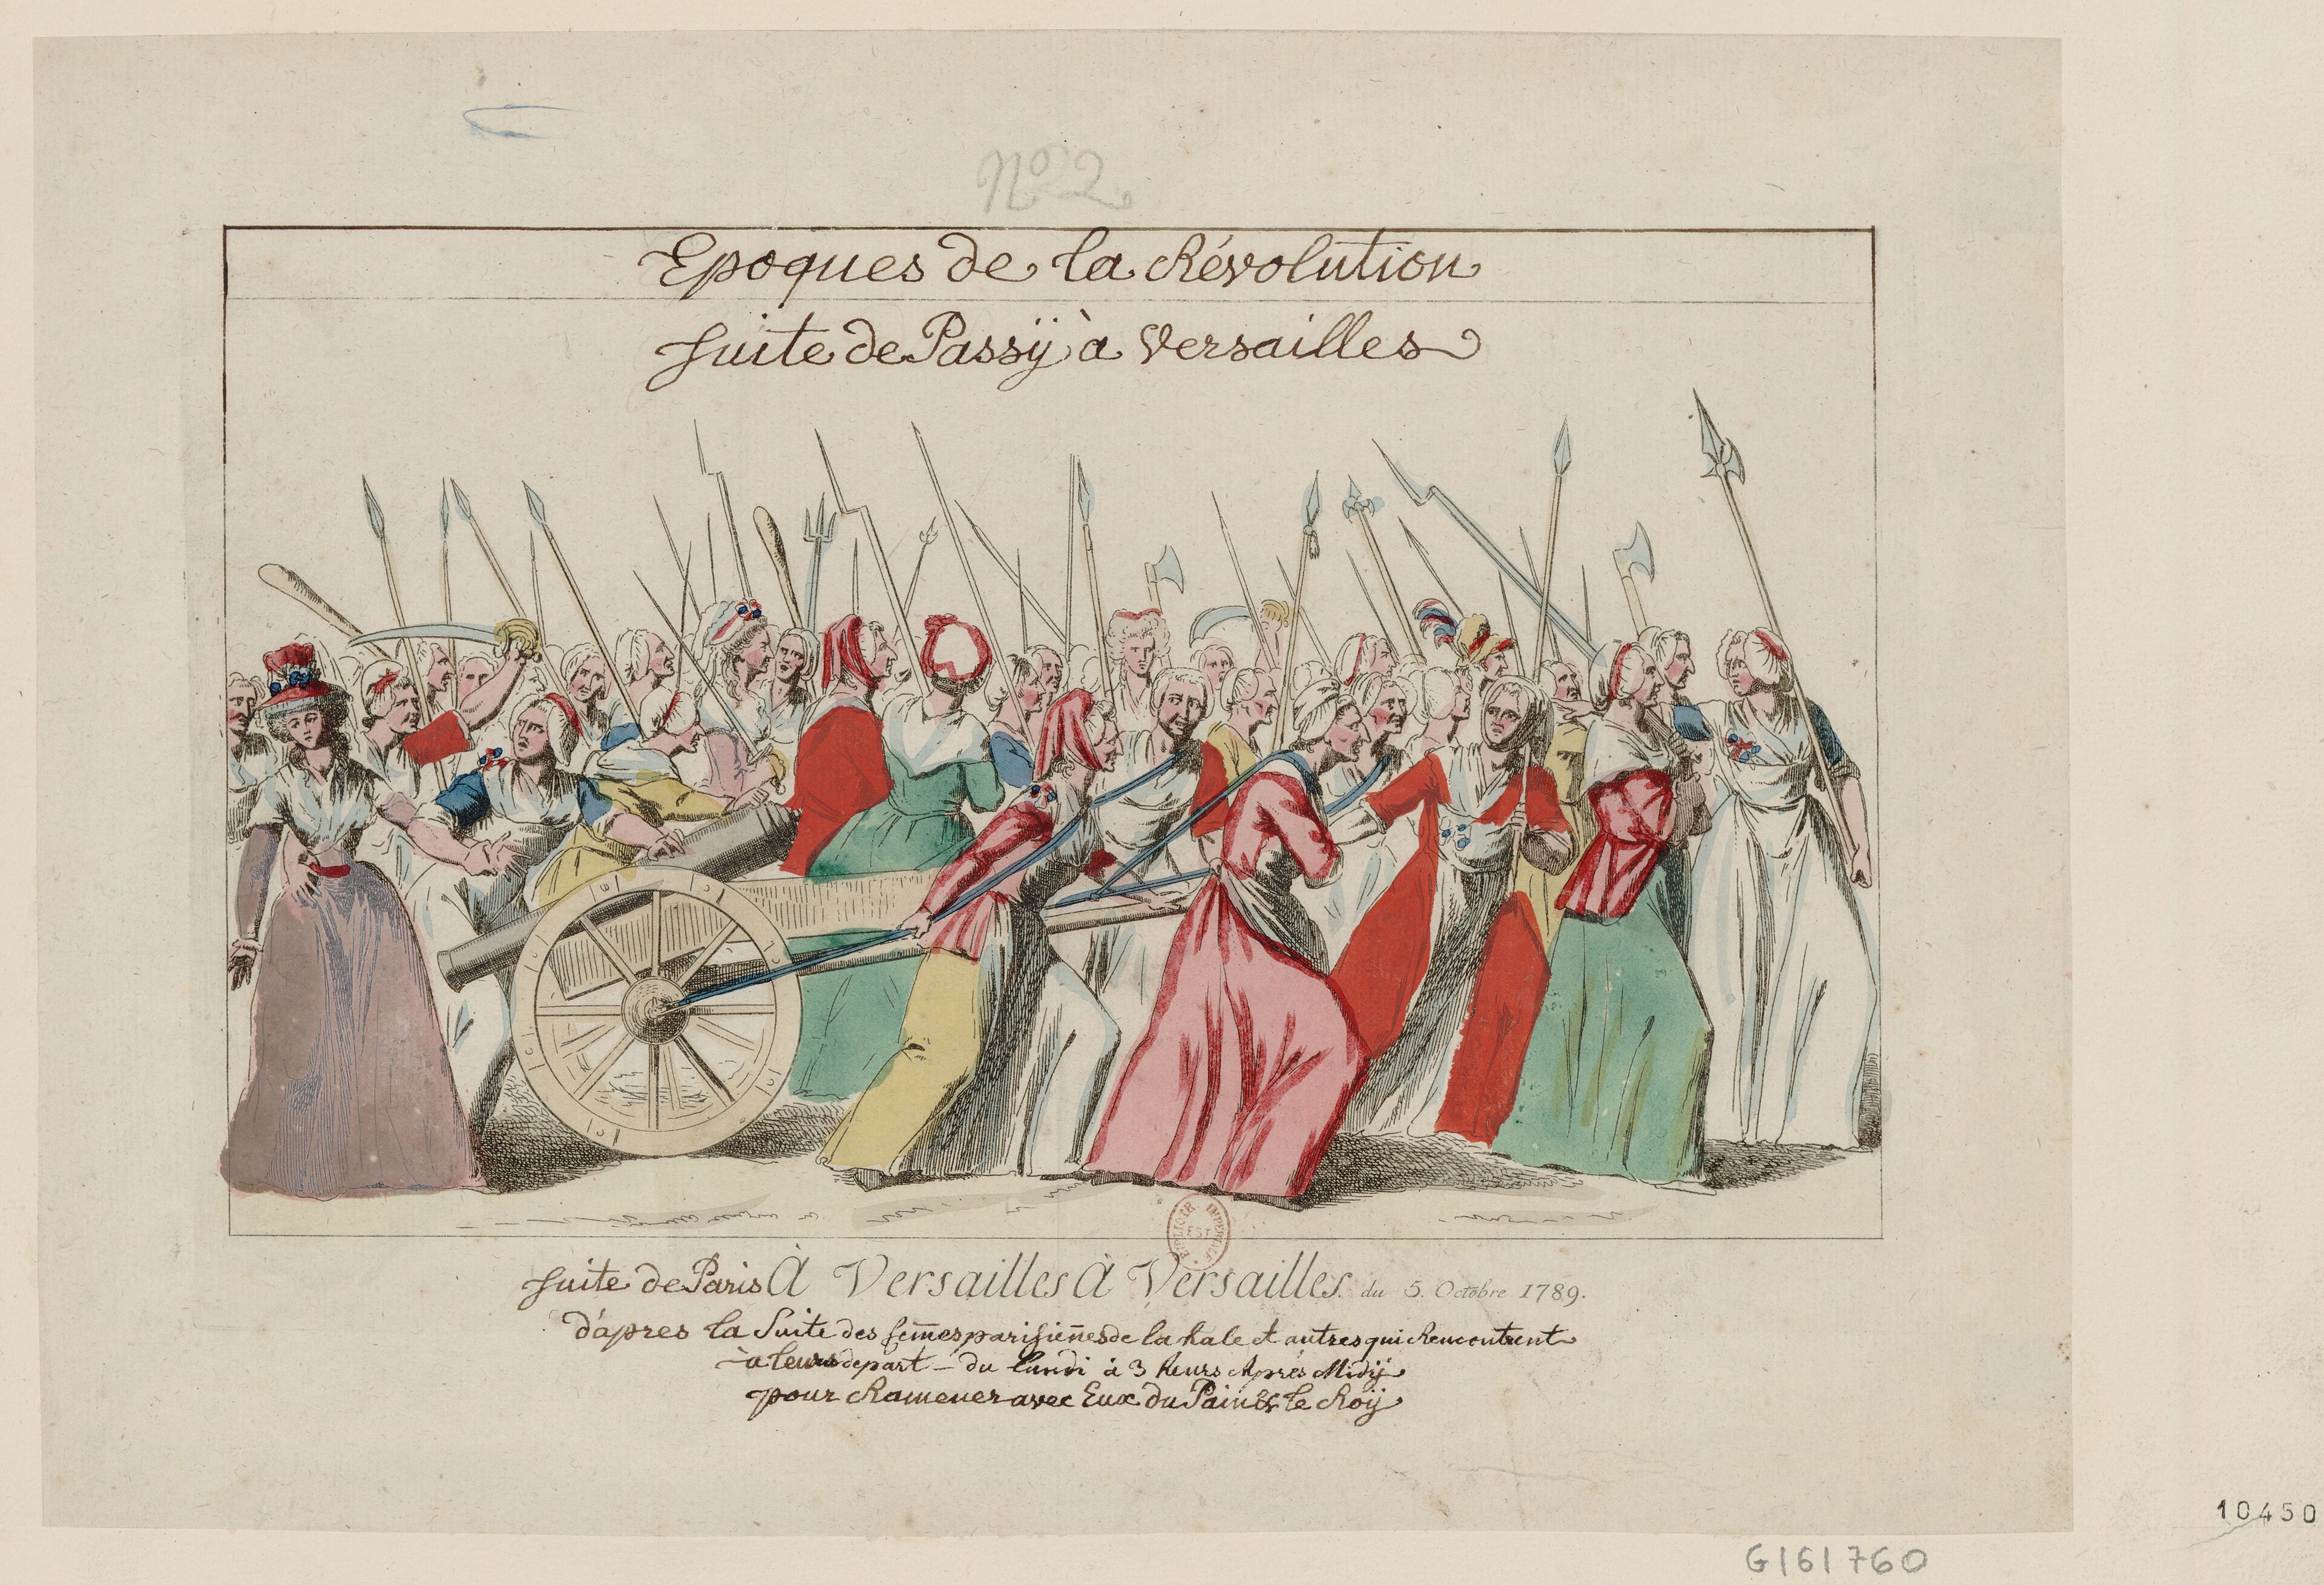 No 2.
Epoques de la Révolution
Suite de Passÿ à Versailles
BIBLIOTH IMPERIALE
EST
Suite de Paris À Versailles À Versailles. du 5. Octobre 1789.
d'apres la Suite des fem̄es parisien̄es de la hale et autres qui Rencontrent
à leurs depart – du Lundi à 3 heurs Apres Midÿ
pour Ramener avec Eux du Pain & le Roÿ
10450
G161760